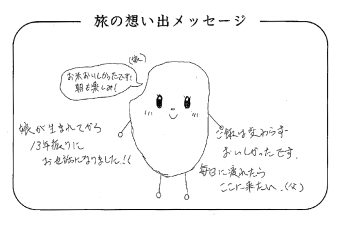 旅の想い出メッセージ
(娘)
お米おいしかったです!
朝も楽しみ!
娘が生まれてから
13年振りに
お世話になりました!!
ご飯は変わらず
おいしかったです。
毎日に疲れたら
ここに来たい。(父)